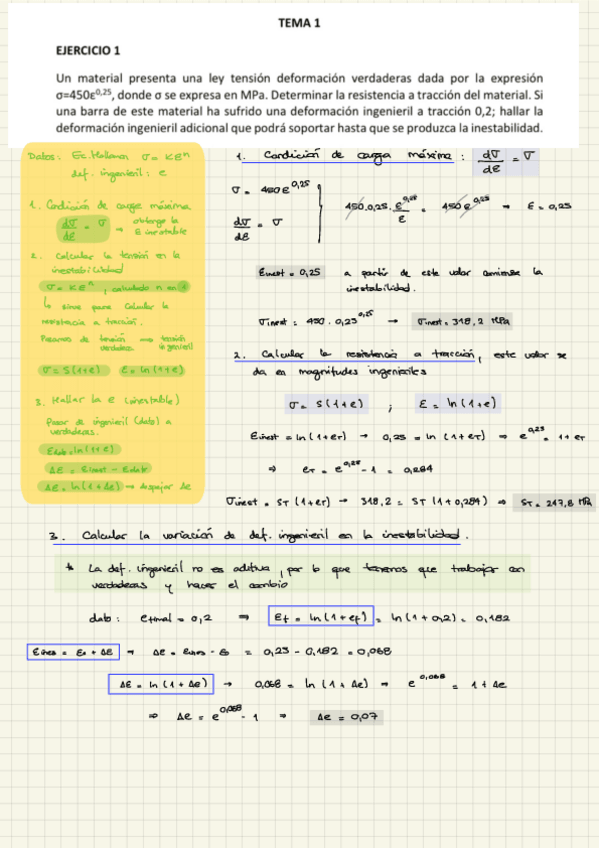 TEMA 1
EJERCICIO 1
Un material presenta una ley tensión deformación verdaderas dada por la expresión
σ=450ε^0,25, donde σ se expresa en MPa. Determinar la resistencia a tracción del material. Si
una barra de este material ha sufrido una deformación ingenieril a tracción 0,2; hallar la
deformación ingenieril adicional que podrá soportar hasta que se produzca la inestabilidad.
Datos: Ec. Hollomon σ = Kε^n
def. ingenieril: e
1. Condición de carga máxima
dσ/dε = σ → obtengo la ε inestable
2. Calcular la tensión en la
inestabilidad
σ = Kε^n, calculado n en 1
↳ sirve para calcular la
resistencia a tracción.
Pasamos de tensión verdadera → tensión ingenieril
σ = S(1+e) ε = ln(1+e)
3. Hallar la e (inestable)
Pasar de ingenieril (dato) a
verdaderas.
εdato = ln(1+e)
Δε = εinest - εdato
Δε = ln(1+Δe) → despejar Δe
1. Condición de carga máxima: dσ/dε = σ
σ = 450ε^0,25
dσ/dε = σ
450·0,25·ε^0,25/ε = 450ε^0,25 → ε = 0,25
εinest = 0,25 a partir de este valor comienza la
inestabilidad.
σinest = 450·0,25^0,25 → σinest = 318,2 MPa
2. Calcular la resistencia a tracción, este valor se
da en magnitudes ingenieriles
σ = S(1+e) ; ε = ln(1+e)
εinest = ln(1+eT) → 0,25 = ln(1+eT) → e^0,25 = 1+eT
⇒ eT = e^0,25 - 1 = 0,284
σinest = ST(1+eT) → 318,2 = ST(1+0,284) ⇒ ST = 247,8 MPa
3. Calcular la variación de def. ingenieril en la inestabilidad.
* La def. ingenieril no es aditiva, por lo que tenemos que trabajar con
verdaderas y hacer el cambio
dato: efinal = 0,2 ⇒ εf = ln(1+ef) = ln(1+0,2) = 0,182
εines = εo + Δε → Δε = εines - εo = 0,25 - 0,182 = 0,068
Δε = ln(1+Δe) → 0,068 = ln(1+Δe) → e^0,068 = 1+Δe
⇒ Δe = e^0,068 - 1 ⇒ Δe = 0,07